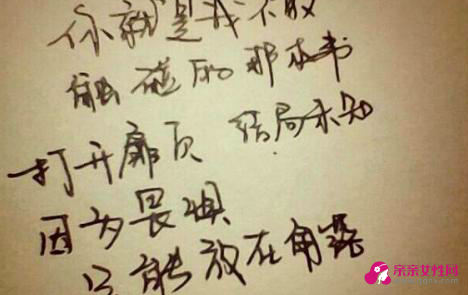 你就是我不敢
触碰的那本书
打开扉页 结局未知
因为畏惧
只能放在角落
亲亲女性网